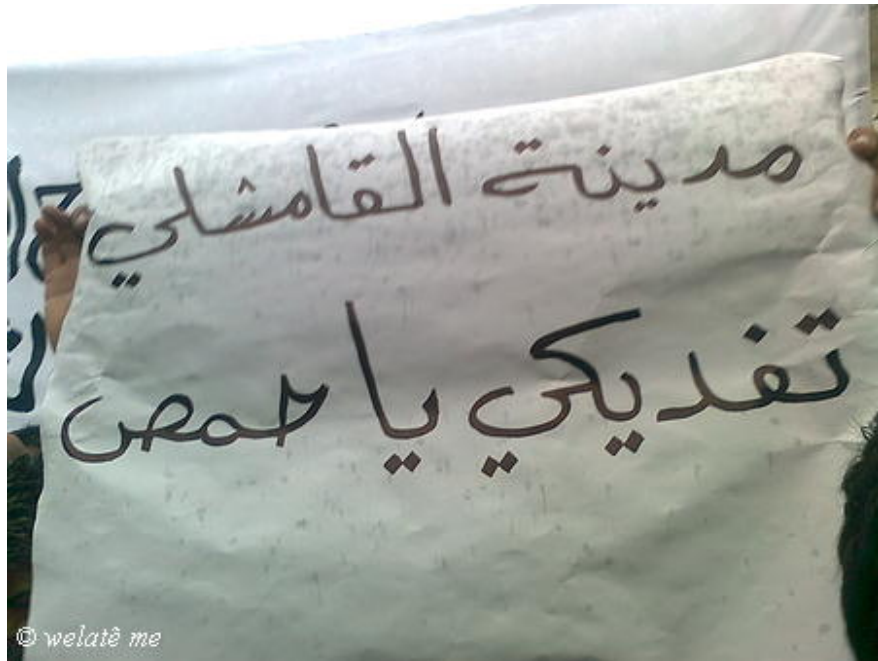 مدينة القامشلي
تفديكي يا حمص
© welatê me